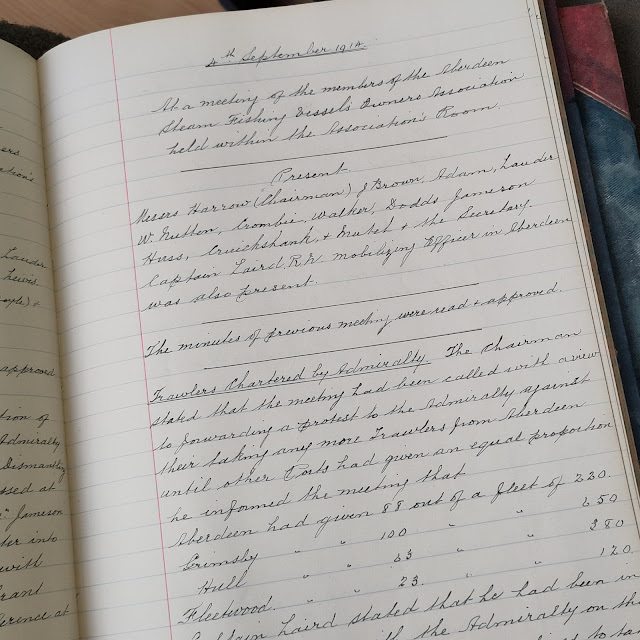 ers
ation's
Lauder
Lewis
ople) &
approved
tion of
Admiralty
Dismantling
ssed at
Jameson
ter into
with
Grant
ference at
4th September 1914
At a meeting of the members of the Aberdeen
Steam Fishing Vessels Owners Association
held within the Association's Room.
Present
Messrs Harrow (Chairman) J Brown, Adam, Lauder
W. Nutten, Crombie, Walker, Dodds, Jameson
Huss, Cruickshank, & Mutch & the Secretary.
Captain Laird, R.N. Mobilizing Officer in Aberdeen
was also present.
The minutes of previous meeting were read & approved.
Trawlers Chartered by Admiralty. The Chairman
stated that the meeting had been called with a view
to forwarding a protest to the Admiralty against
their taking any more Trawlers from Aberdeen
until other Ports had given an equal proportion
he informed the meeting that
Aberdeen had given 88 out of a fleet of 220.
Grimsby " " 100 " " 650
Hull " " 63 " " 380
Fleetwood. " " 23. " " 120.
Captain Laird stated that he had been in
with the Admiralty on th